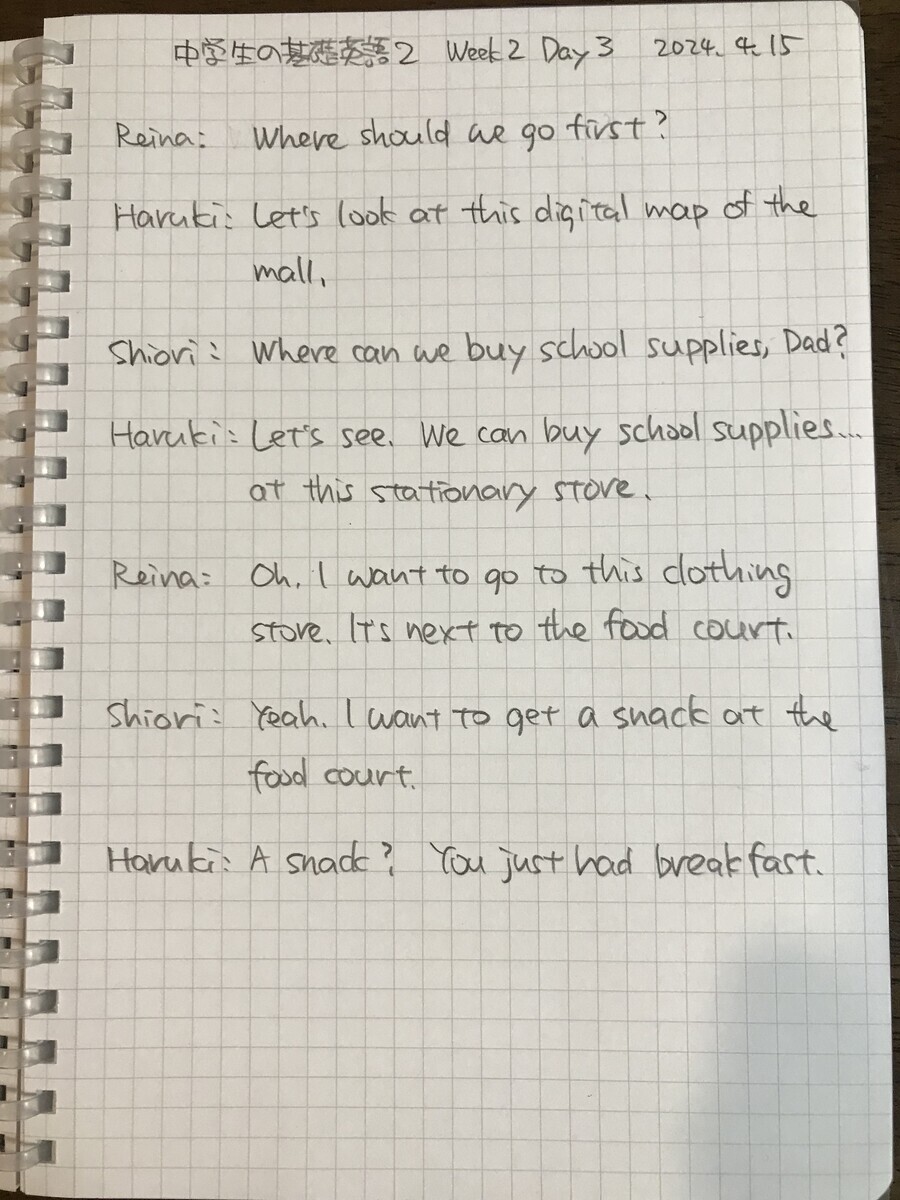 中学生の基礎英語2 Week2 Day3 2024.4.15
Reina: Where should we go first?
Haruki: Let's look at this digital map of the
mall.
Shiori: Where can we buy school supplies, Dad?
Haruki: Let's see. We can buy school supplies...
at this stationary store.
Reina: Oh. I want to go to this clothing
store. It's next to the food court.
Shiori: Yeah. I want to get a snack at the
food court.
Haruki: A snack? You just had breakfast.